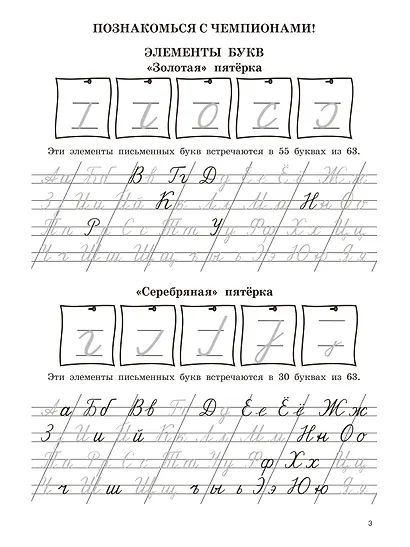 ПОЗНАКОМЬСЯ С ЧЕМПИОНАМИ!
ЭЛЕМЕНТЫ БУКВ
«Золотая» пятёрка
Эти элементы письменных букв встречаются в 55 буквах из 63.
Аа Бб Вв Гг Дд Ее Ёё Жж
Зз Ии Йй Кк Лл Мм Нн Оо
Пп Рр Сс Тт Уу Фф Хх Цц
Чч Шш Щщ ъ ы ь Ээ Юю Яя
«Серебряная» пятёрка
Эти элементы письменных букв встречаются в 30 буквах из 63.
Аа Бб Вв Гг Дд Ее Ёё Жж
Зз Ии Йй Кк Лл Мм Нн Оо
Пп Рр Сс Тт Уу Фф Хх Цц
Чч Шш Щщ ъ ы ь Ээ Юю Яя
3